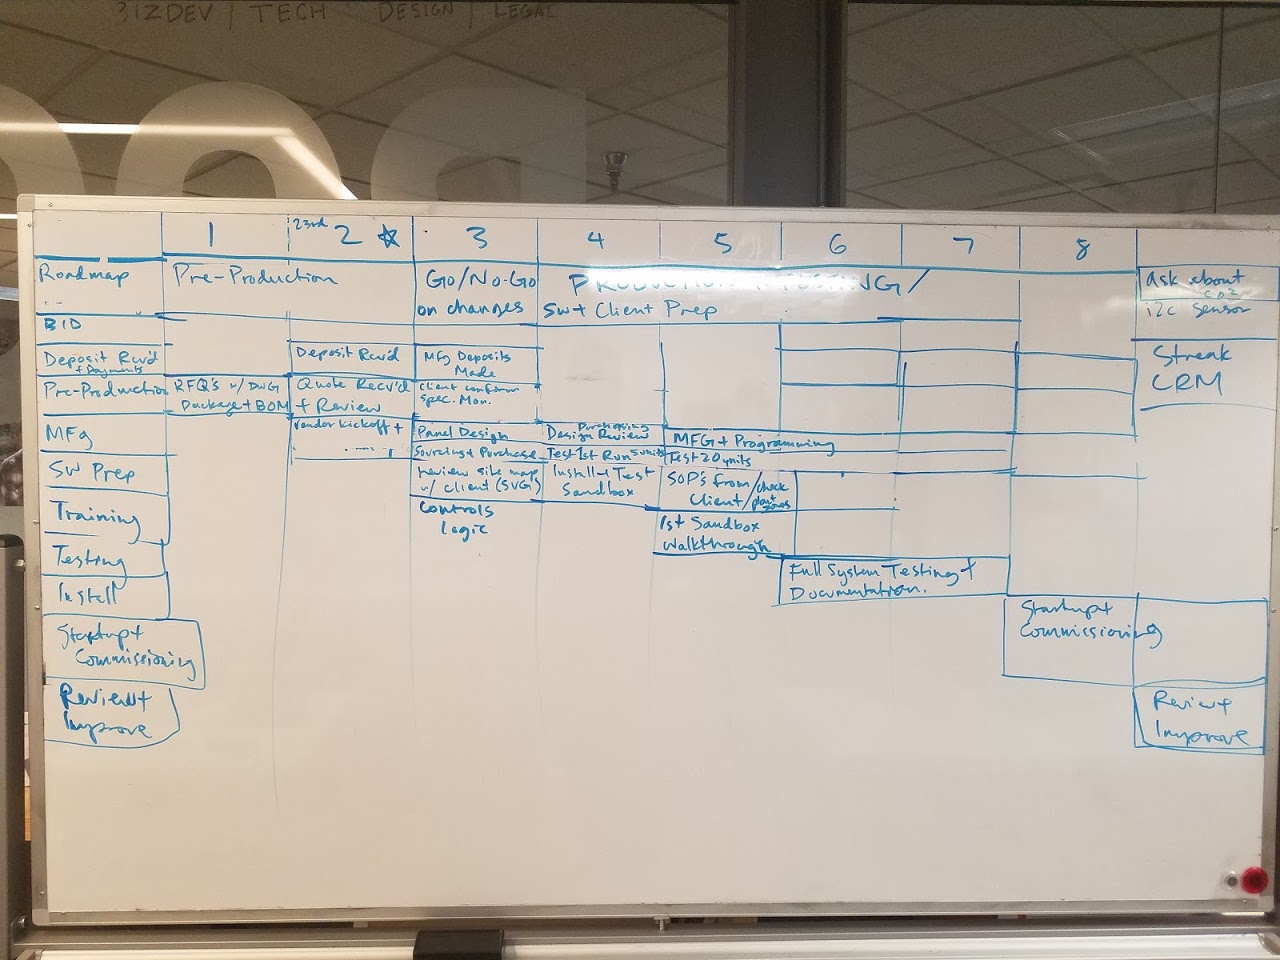 BIZDEV | TECH DESIGN | LEGAL
1 23rd 2 3 4 5 6 7 8
Roadmap
Pre-Production
Go/No-Go
on changes
PRODUCTION TESTING/
SW + Client Prep
ask about
CO2
i2c sensor
BID
Deposit Rcv'd
+ Payments
Deposit Rcvd
MFg Deposits
Made
Streak
CRM
Pre-Production
RFQ's w/ DWG
Package + BOM
Quote Recv'd
+ Review
Client confirm
spec. Mon.
MFg
Vendor Kickoff +
Panel Design
Purchasing
Design Review
MFG + Programming
Sourcing + Purchase
Test 1st Run 5 units
Test 20 units
SW Prep
review site map
w/ client (SVG)
Install + Test
Sandbox
SOP's from
Client/check
plant
zones
Training
Controls
Logic
1st Sandbox
Walkthrough
Testing
Full System Testing +
Documentation.
Install
Startup +
Commissioning
Startup +
Commissioning
Review +
Improve
Review +
Improve